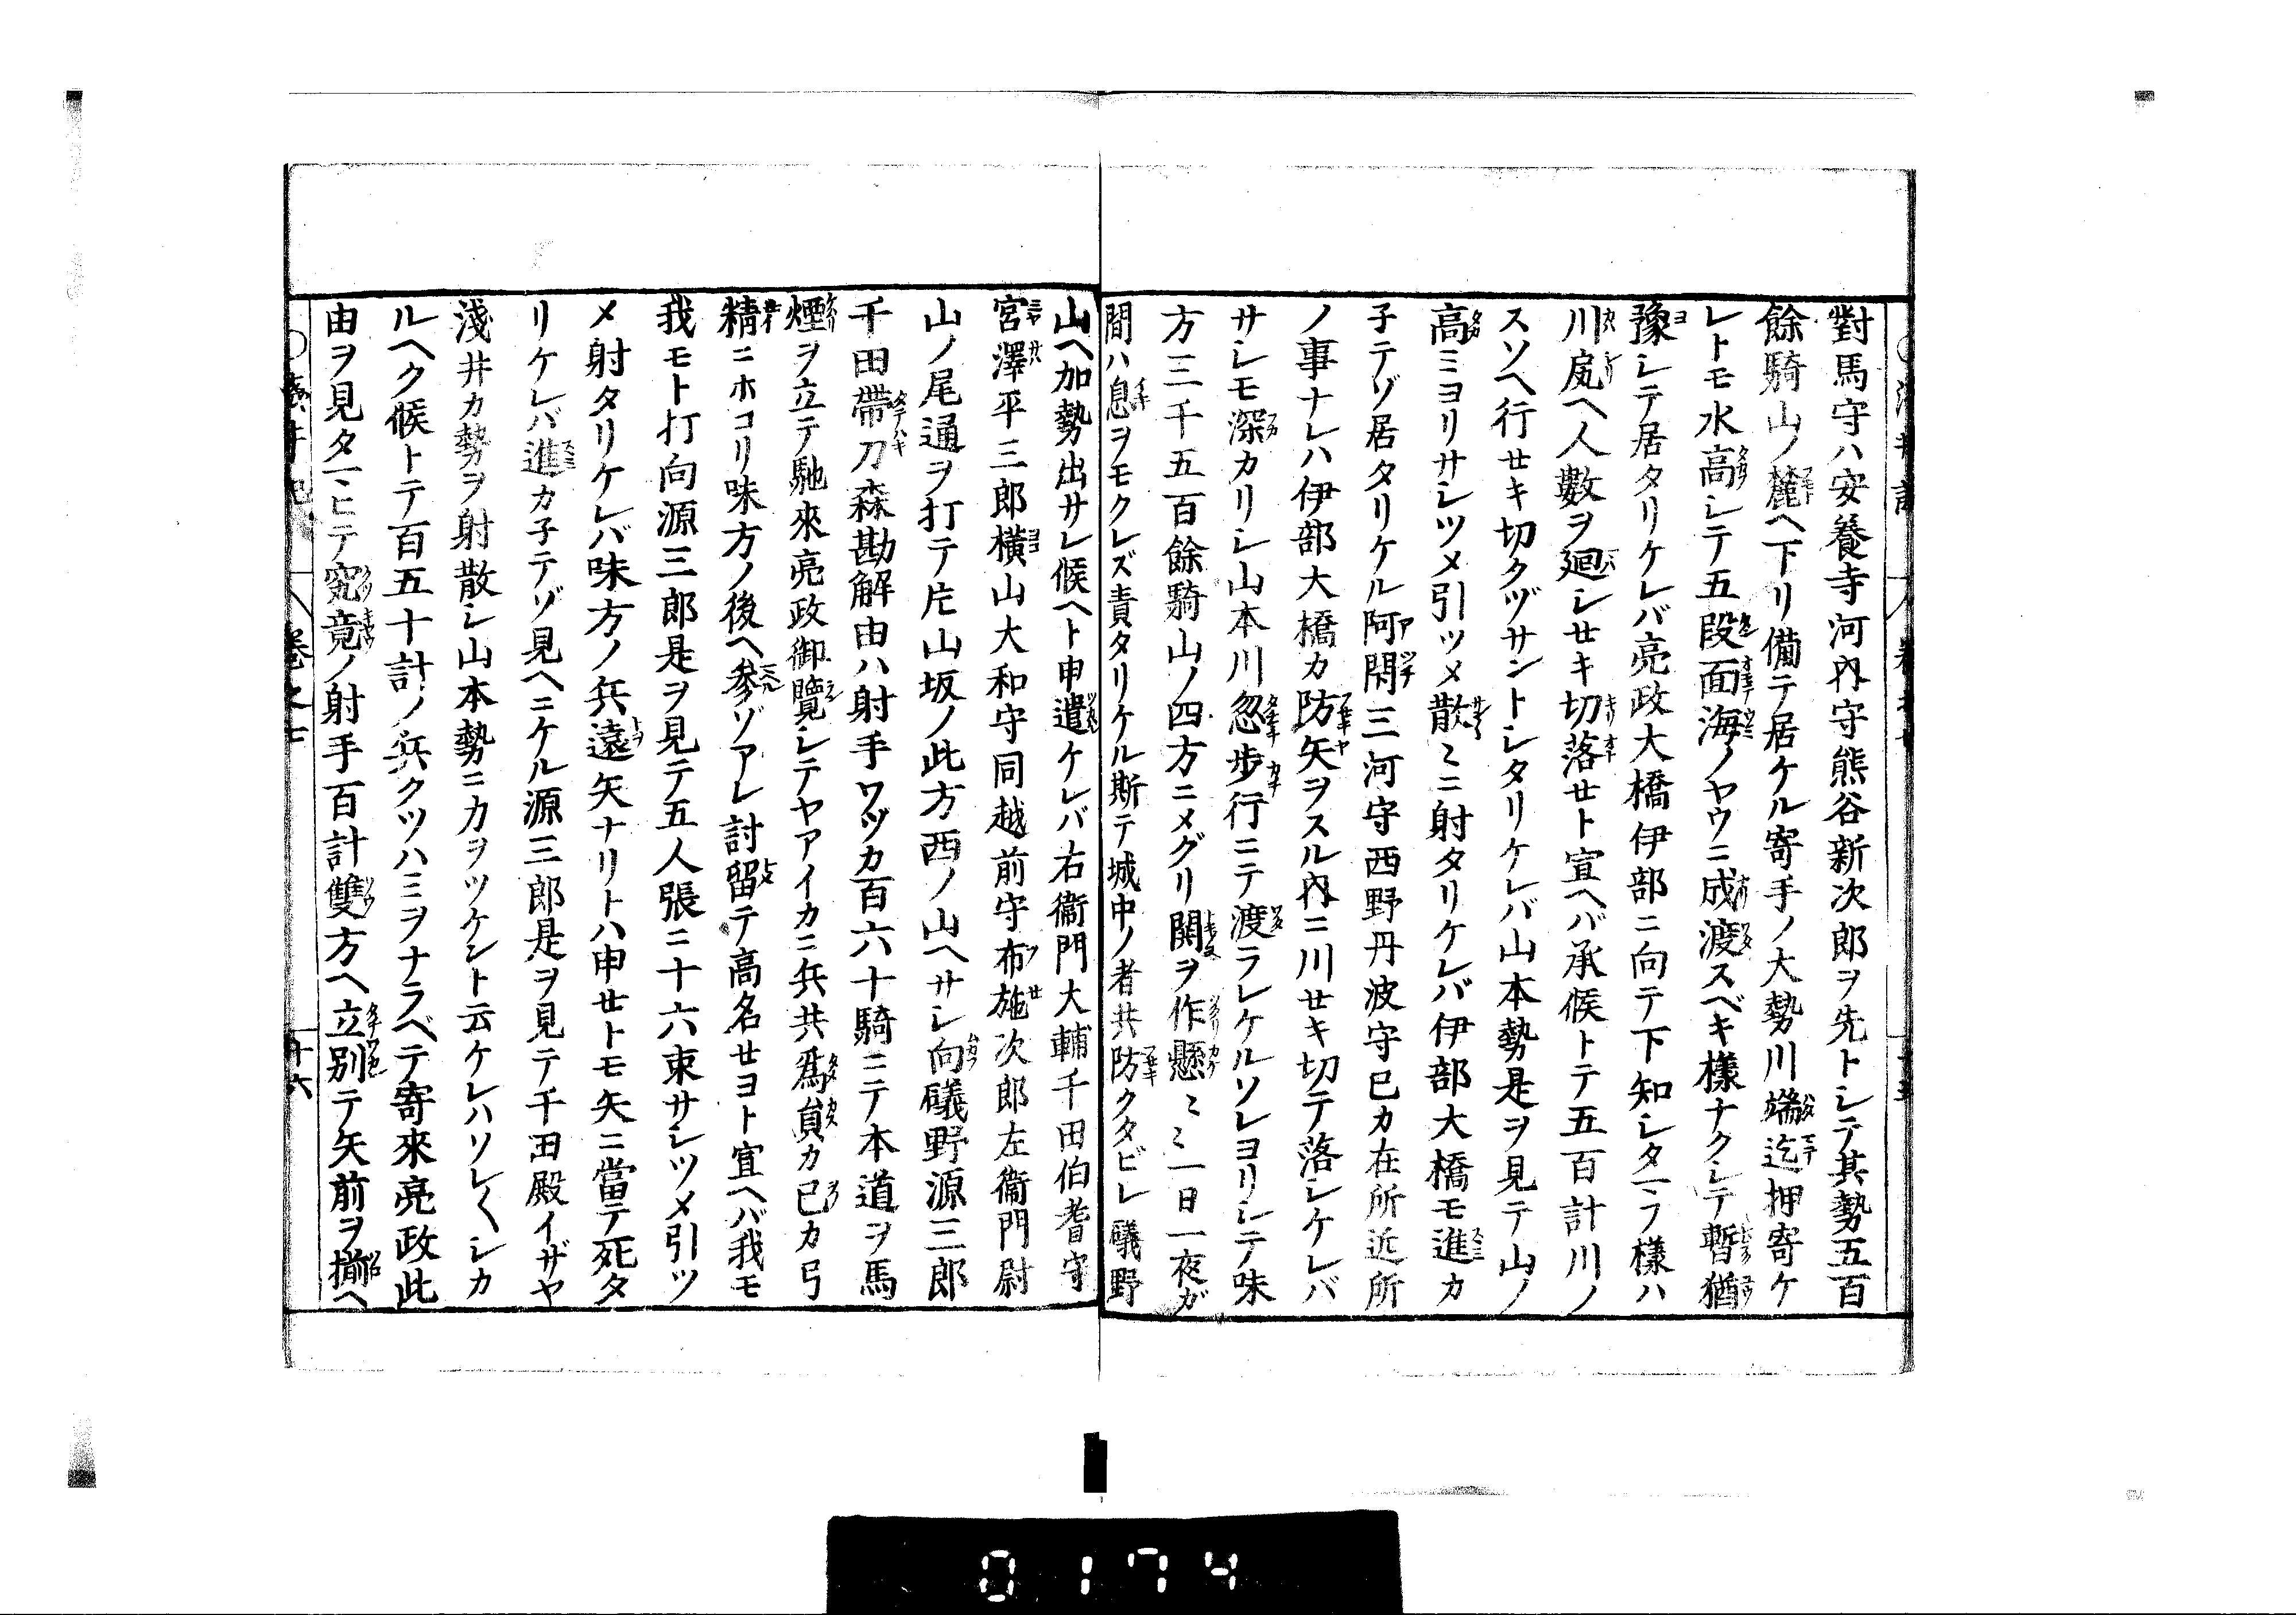 對馬守ハ安養寺河內守熊谷新次郎ヲ先トシテ其勢五百
餘騎山ノ麓ヘ下リ備テ居ケル寄手ノ大勢川端迄押寄ケ
レトモ水高シテ五段面海ノヤウニ成渡スベキ樣ナクシテ暫猶
豫シテ居タリケレバ亮政大橋伊部ニ向テ下知シタマフ樣ハ
川戻ヘ人數ヲ廻シセキ切落セト宣ヘバ承候トテ五百計川ノ
スソヘ行セキ切クヅサントシタリケレバ山本勢是ヲ見テ山ノ
高ミヨリサシツメ引ツメ散〻ニ射タリケレバ伊部大橋モ進カ
子テゾ居タリケル阿閉三河守西野丹波守已カ在所近所
ノ事ナレハ伊部大橋カ防矢ヲスル內ニ川セキ切テ落シケレバ
サシモ深カリシ山本川忽步行ニテ渡ラレケルソレヨリシテ味
方三千五百餘騎山ノ四方ニメグリ鬨ヲ作懸〻〻一日一夜ガ
間ハ息ヲモクレズ責タリケル斯テ城中ノ者共防クタビレ礒野
山ヘ加勢出サレ候ヘト申遣ケレバ右衞門大輔千田伯耆守
宮澤平三郎橫山大和守同越前守布施次郎左衞門尉
山ノ尾通ヲ打テ片山坂ノ此方西ノ山ヘサシ向礒野源三郎
千田帶刀森勘解由ハ射手ワヅカ百六十騎ニテ本道ヲ馬
煙ヲ立テ馳來亮政御覽シテヤアイカニ兵共爲員カ已カ弓
精ニホコリ味方ノ後ヘ參ゾアレ討留テ高名セヨト宣ヘバ我モ
我モト打向源三郎是ヲ見テ五人張ニ十六束サシツメ引ツ
メ射タリケレバ味方ノ兵遠矢ナリトハ申セトモ矢ニ當テ死タ
リケレバ進カ子テゾ見ヘニケル源三郎是ヲ見テ千田殿イザヤ
淺井カ勢ヲ射散シ山本勢ニカヲツケント云ケレハソレ〱シカ
ルヘク候トテ百五十計ノ兵クツハミヲナラベテ寄來亮政此
由ヲ見タマヒテ究竟ノ射手百計雙方ヘ立別テ矢前ヲ揃ヘ
卷之七
十六
0174